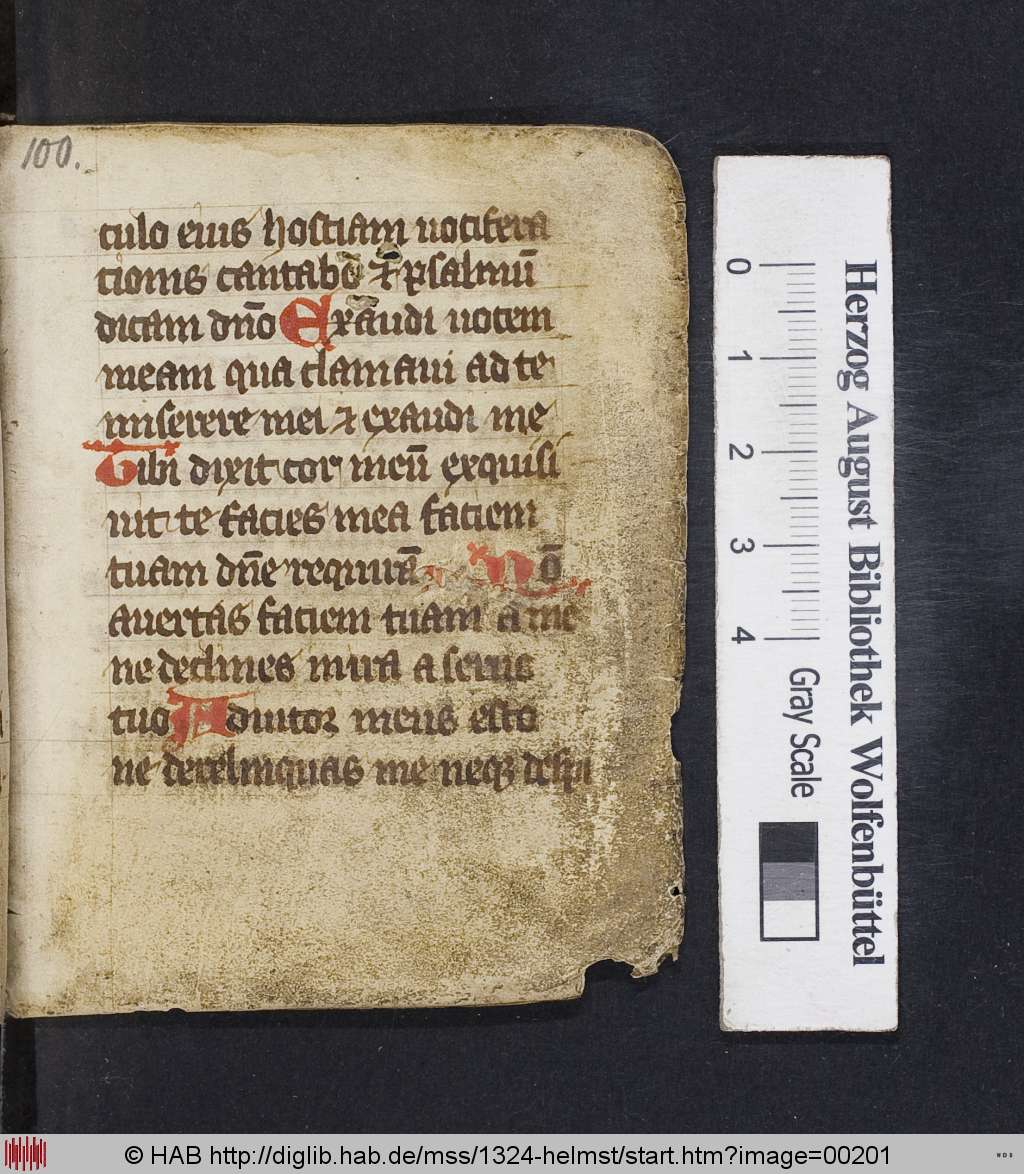 100.
culo eius hostiam uocifera
tionis cantabo ⁊ psalmū
dicam dn̄o Exaudi uocem
meam qua clamaui ad te
miserere mei ⁊ exaudi me
Tibi dixit cor meū exquisi
uit te facies mea faciem
tuam dn̄e requirā Nō
auertas faciem tuam a me
ne declines in ira a seruo
tuo Adiutor meus esto
ne derelinquas me neqꝫ despi
0 1 2 3 4
Gray Scale
Herzog August Bibliothek Wolfenbüttel
© HAB http://diglib.hab.de/mss/1324-helmst/start.htm?image=00201